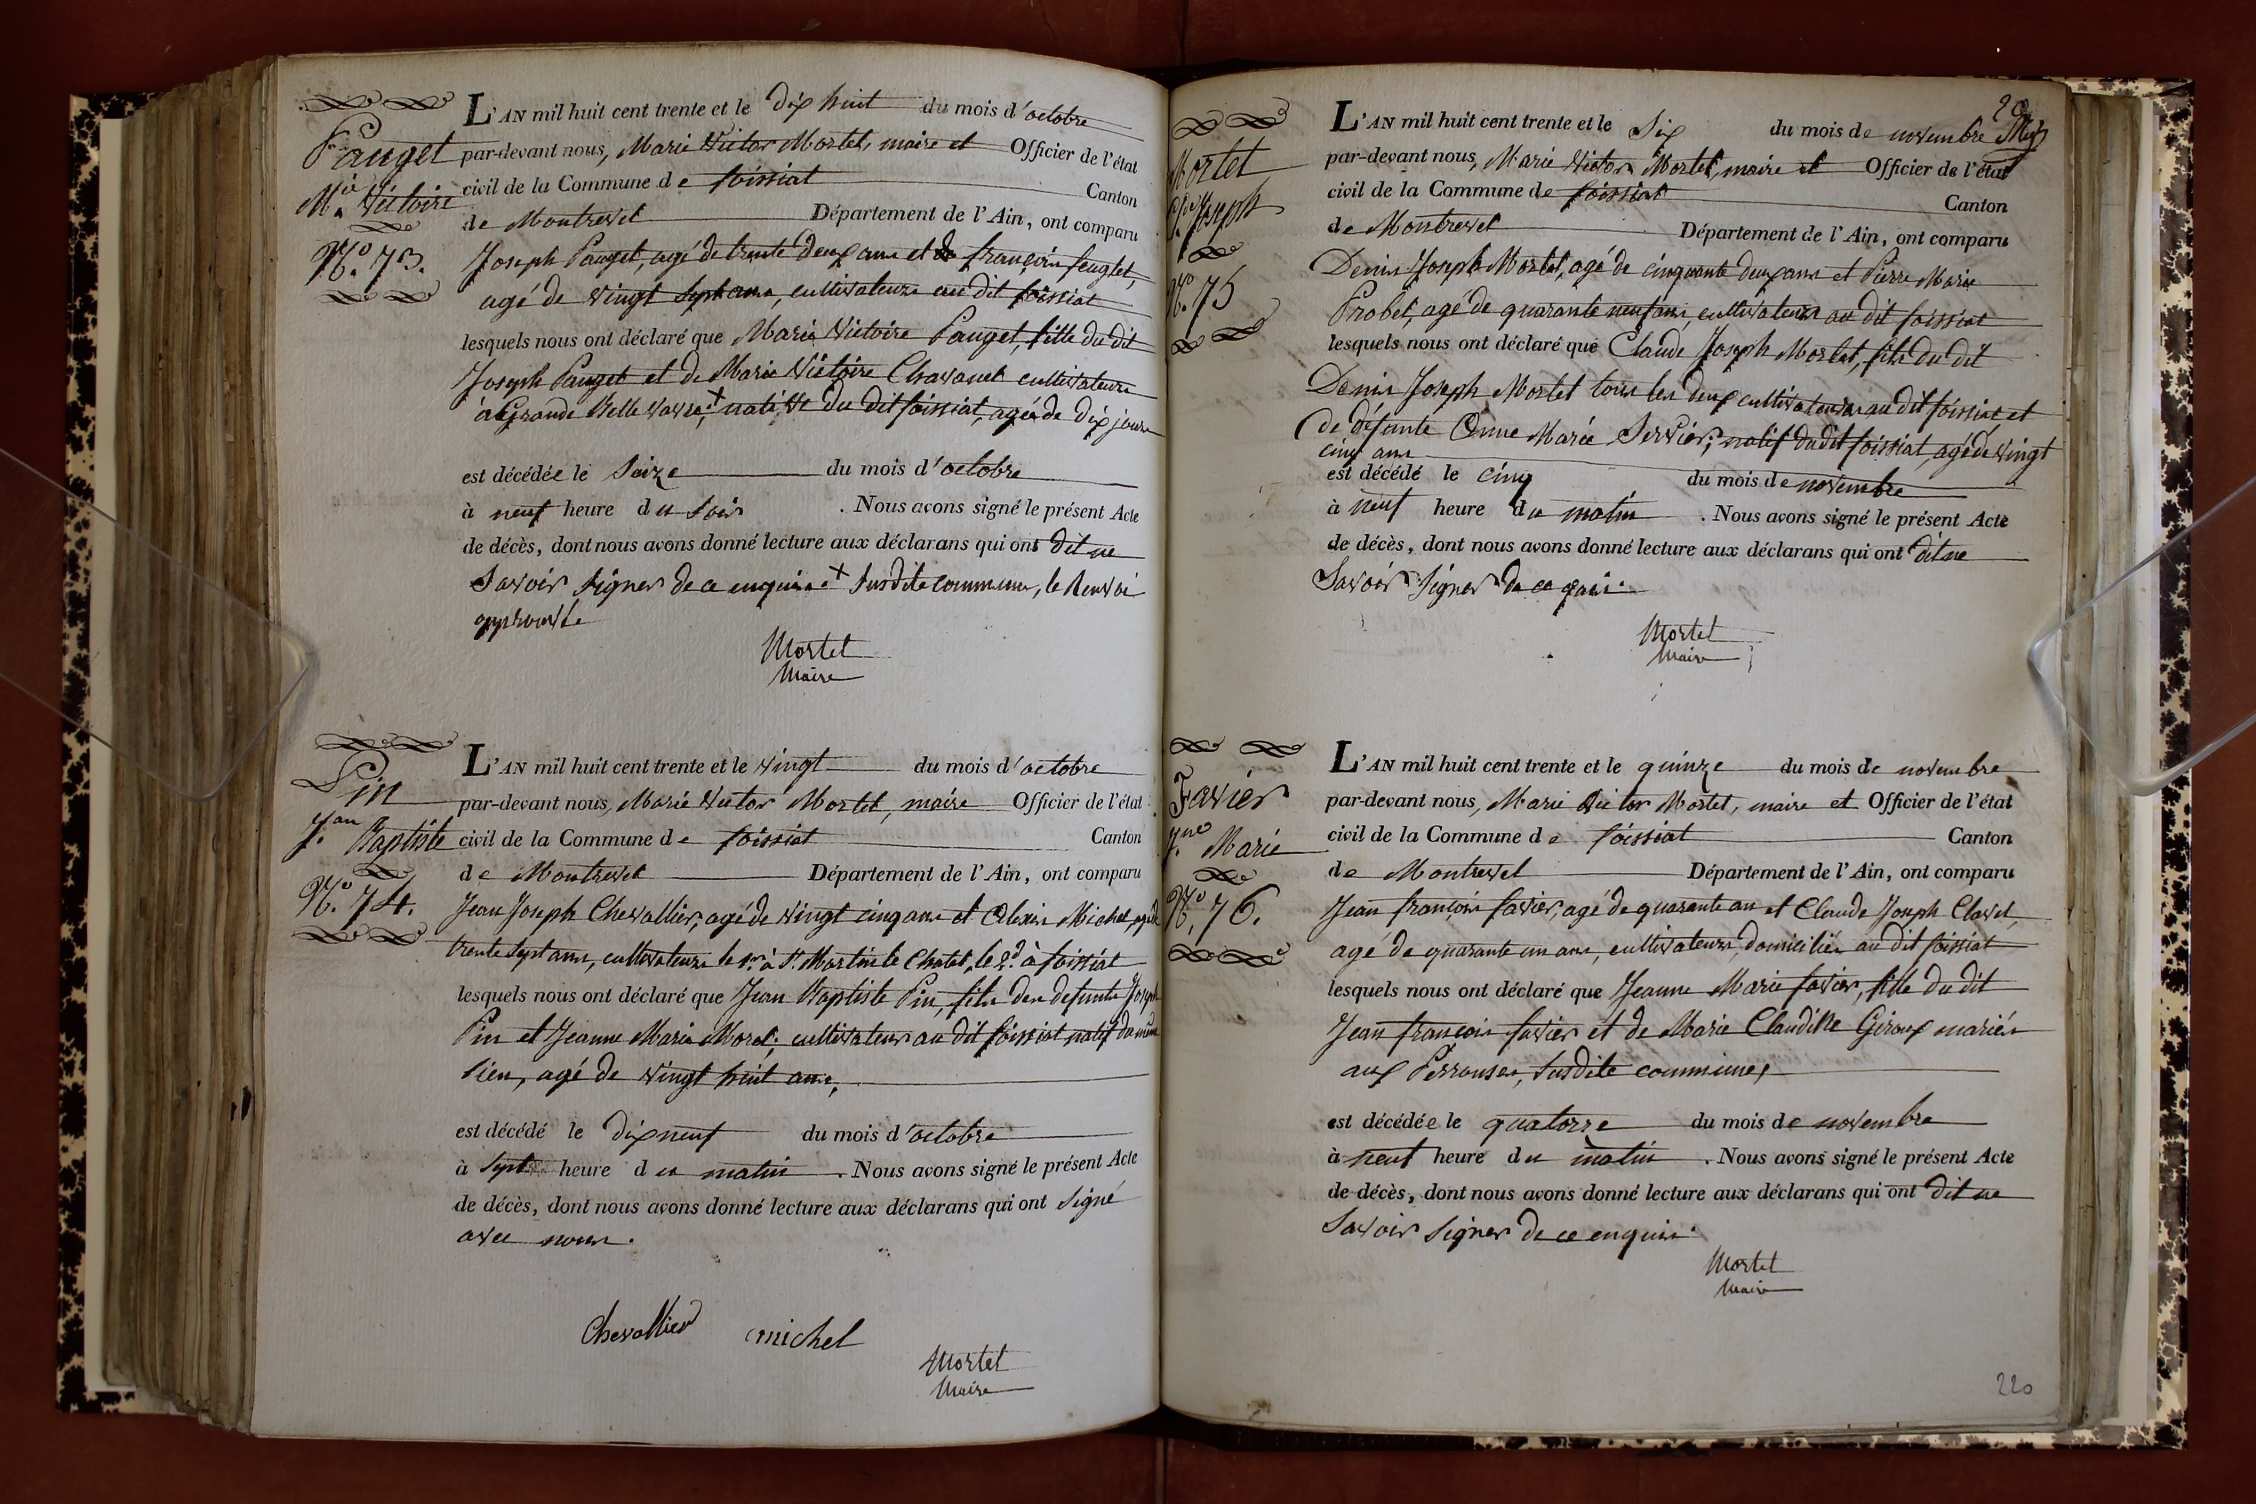 Pauget
M.ie Victoire
N.o 73.
L'AN mil huit cent trente et le dix huit du mois d'octobre
par-devant nous, Marie Victor Mortet, maire et Officier de l'état
civil de la Commune de foissiat Canton
de Montrevel Département de l'Ain, ont comparu
Joseph Pauget, agé de trente deux ans et françois feuglet,
agé de vingt sept ans, cultivateurs au dit foissiat
lesquels nous ont déclaré que Marie Victoire Pauget, fille du dit
Joseph Pauget et de Marie Victoire Chavanet cultivateurs
à Grande Belle vavre,+ native du dit foissiat, agée de dix jours
est décédée le Seize du mois d'octobre
à neuf heure du Soir . Nous avons signé le présent Acte
de décès, dont nous avons donné lecture aux déclarans qui ont dit ne
Savoir Signer de ce enquis + Susdite commune, le Renvoi
approuvé
Mortet
Maire
Pin
J.ean Baptiste
N.o 74.
L'AN mil huit cent trente et le vingt du mois d'octobre
par-devant nous, Marie Victor Mortet, maire Officier de l'état
civil de la Commune de foissiat Canton
de Montrevel Département de l'Ain, ont comparu
Jean Joseph Chevallier, agé de vingt cinq ans et Alexis Michel, agé de
trente Sept ans, cultivateurs le 1.er à S.t Martin le Chatel, le 2.d à foissiat
lesquels nous ont déclaré que Jean Baptiste Pin, fils des defunts Joseph
Pin et Jeanne Marie Morel, cultivateur au dit foissiat natif du même
lieu, agé de vingt huit ans,
est décédé le dix neuf du mois d'octobre
à Sept heure du matin . Nous avons signé le présent Acte
de décès, dont nous avons donné lecture aux déclarans qui ont Signé
avec nous.
Chevallier michel
Mortet
Maire
20
Mortet
C.de Joseph
N.o 75
L'AN mil huit cent trente et le Six du mois de novembre
par-devant nous, Marie Victor Mortet, maire et Officier de l'état
civil de la Commune de foissiat Canton
de Montrevel Département de l'Ain, ont comparu
Denis Joseph Mortet, agé de cinquante deux ans et Pierre Marie
Probet, agé de quarante neuf ans, cultivateurs au dit foissiat
lesquels nous ont déclaré que Claude Joseph Mortet, fils du dit
Denis Joseph Mortet tous les deux cultivateurs au dit foissiat et
de défunte Anne Marie Servier; natif du dit foissiat, agé de vingt
cinq ans
est décédé le cinq du mois de novembre
à neuf heure du matin . Nous avons signé le présent Acte
de décès, dont nous avons donné lecture aux déclarans qui ont dit ne
Savoir Signer de ce
Mortet
Maire
Favier
J.ne Marie
N.o 76.
L'AN mil huit cent trente et le quinze du mois de novembre
par-devant nous, Marie Victor Mortet, maire et Officier de l'état
civil de la Commune de foissiat Canton
de Montrevel Département de l'Ain, ont comparu
Jean françois favier, agé de quarante ans et Claude Joseph Clavel,
agé de quarante un ans, cultivateurs, domiciliés au dit foissiat
lesquels nous ont déclaré que Jeanne Marie favier, fille du dit
Jean françois favier et de Marie Claudine Giroux mariés
aux Perrouses, Susdite commune,
est décédée le quatorze du mois de novembre
à neuf heure du matin . Nous avons signé le présent Acte
de décès, dont nous avons donné lecture aux déclarans qui ont dit ne
Savoir Signer de ce enquis.
Mortet
Maire
220